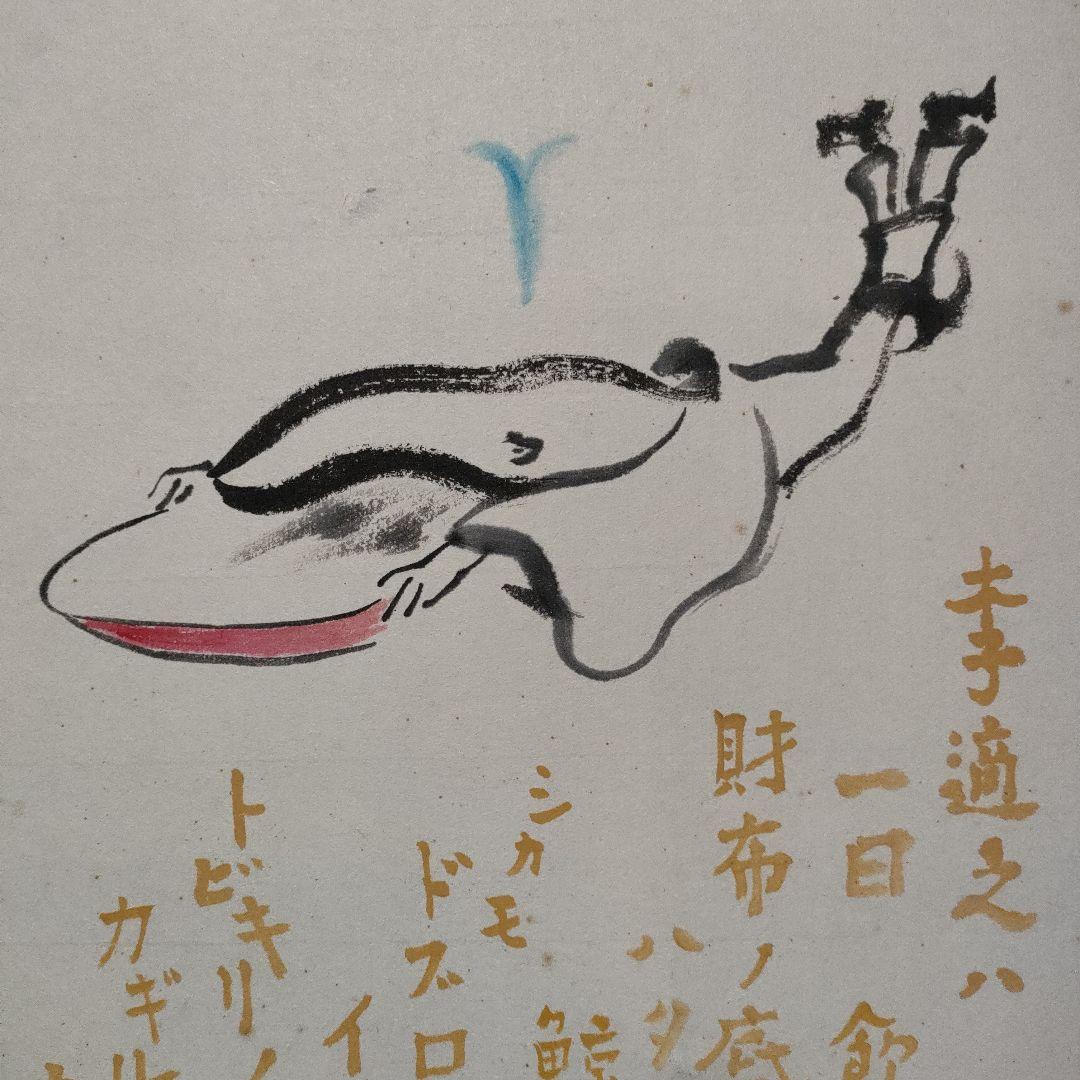 李適之ハ
一日 飲
財布ノ底
ハタ
鯨
シカモ
ドブロ
イ
トビキリ
カギ